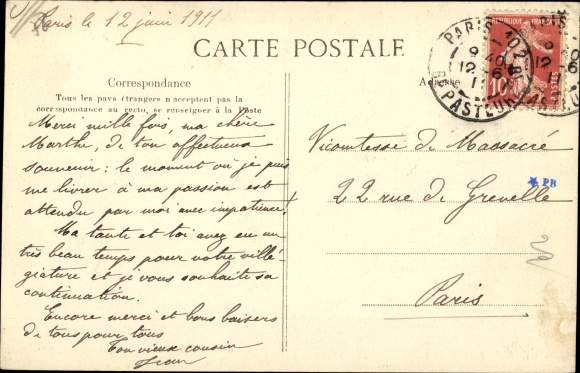 Paris le 12 juin 1911
CARTE POSTALE
Correspondance
Tous les pays étrangers n'acceptent pas la
correspondance au recto, se renseigner à la Poste
Merci mille fois, ma chère
Marthe, de ton affectueux
souvenir : le moment où je puis
me livrer à ma passion est
attendu par moi avec impatience!
Ma tante et toi avez eu un
très beau temps pour votre villé-
giature et je vous souhaite sa
continuation.
Encore merci et bons baisers
de tous pour tous
Ton vieux cousin
Jean
REPUBLIQUE FRANÇAISE
10
PARIS 102
9 40
12 6
11
R. PASTEUR
Adresse
Vicomtesse de Massacré
22 rue de Grenelle
PR
Paris